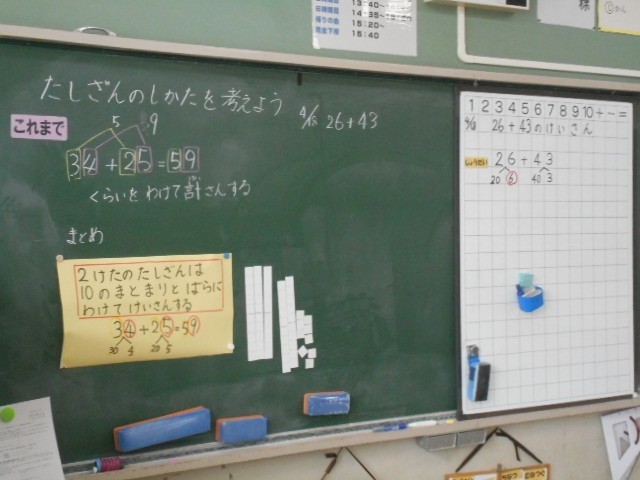 13:40~
14:35~15:20
帰りの会 15:20~
完全下校 15:40
様
たしざんのしかたを考えよう
4/18 26+43
これまで
5 9
34+25=59
くらいをわけて計さんする
まとめ
2けたのたしざんは
10のまとまりとばらに
わけてけいさんする
34+25=59
30 4 20 5
1 2 3 4 5 6 7 8 9 10 + - =
26+43のけいさん
26+43
20 6 40 3